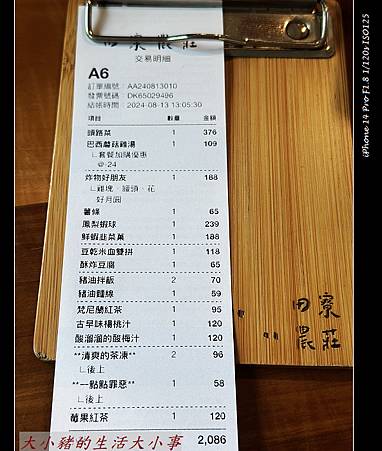 田寮農莊
交易明細
A6
訂單編號：AA240813010
發票號碼：DK65029496
結帳時間：2024-08-13 13:05:30
項目 數量 金額
頭路菜 1 376
巴西蘑菇雞湯 1 109
└套餐加購優惠
@-24
炸物好朋友 1 188
└雞塊、饅頭、花
好月圓
薯條 1 65
鳳梨蝦球 1 239
鮮蝦韭菜 1 188
豆乾米血雙拼 1 118
酥炸豆腐 1 65
豬油拌飯 2 70
豬油麵線 1 59
梵尼蘭紅茶 1 95
古早味楊桃汁 1 120
酸溜溜的酸梅汁 1 120
**清爽的茶凍 2 96
└後上
**一點點罪惡 1 58
└後上
莓果紅茶 1 120
2,086
田寮
農莊
大小豬的生活大小事
iPhone 14 Pro F1.8 1/120s ISO125